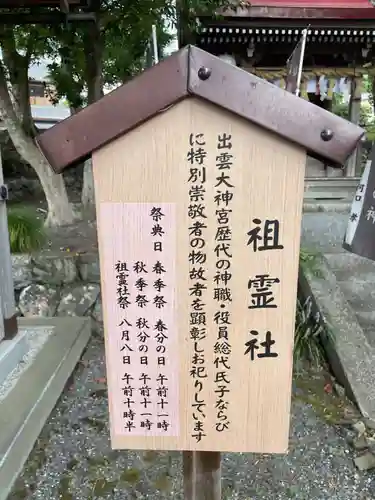 祖霊社
出雲大神宮歴代の神職・役員総代氏子ならび
に特別崇敬者の物故者を顕彰しお祀りしています
祭典日
春季祭 春分の日 午前十一時
秋季祭 秋分の日 午前十一時
祖霊社祭 八月八日 午前十時半